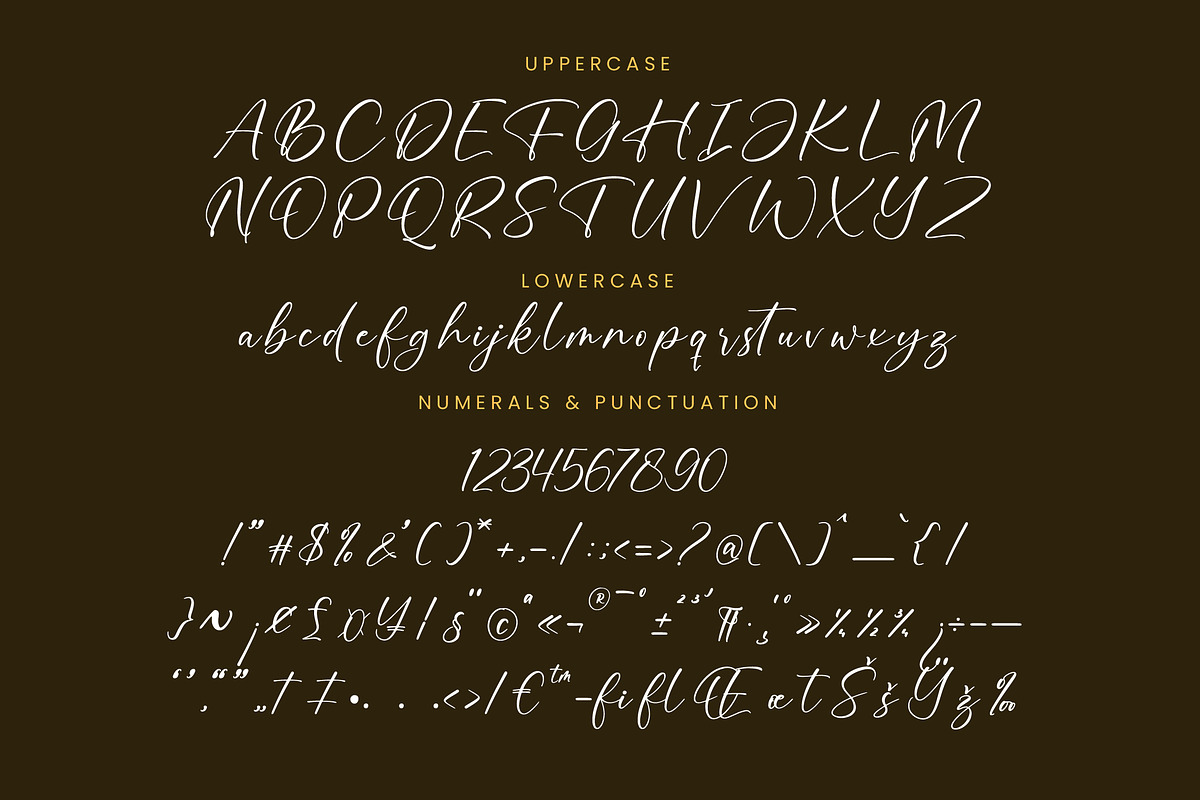 UPPERCASE
ABCDEFGHIJKLM
NOPQRSTUVWXYZ
LOWERCASE
abcdefghijklmnopqrstuvwxyz
NUMERALS & PUNCTUATION
1234567890
!"#$%&'()*+,-./:;<=>?@[\]^_`{|
}~¡¢£¤¥¦§¨©ª«¬®¯°±²³´¶·¸¹º»¼½¾¿÷–—
‘’‚“”„†‡•. . .‹›/€™−fiflŒœtŠšŸž‰